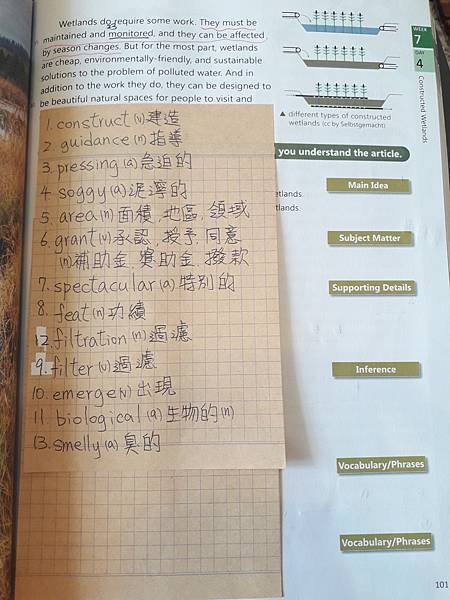 Wetlands do require some work. They must be
23
maintained and monitored, and they can be affected
by season changes. But for the most part, wetlands
are cheap, environmentally-friendly, and sustainable
solutions to the problem of polluted water. And in
addition to the work they do, they can be designed to
be beautiful natural spaces for people to visit and
▲ different types of constructed
wetlands (cc by Selbstgemacht)
WEEK
7
DAY
4
Constructed Wetlands
you understand the article.
etlands.
tlands.
Main Idea
Subject Matter
Supporting Details
Inference
Vocabulary/Phrases
Vocabulary/Phrases
101
1. construct (v) 建造
2. guidance (n) 指導
3. pressing (a) 急迫的
4. soggy (a) 泥濘的
5. area (n) 面積, 地區, 領域
6. grant (v) 承認, 授予, 同意
(n) 補助金, 獎助金, 撥款
7. spectacular (a) 特別的
8. feat (n) 功績
12. filtration (n) 過濾
9. filter (v) 過濾
10. emerge (v) 出現
11. biological (a) 生物的 (n)
13. smelly (a) 臭的